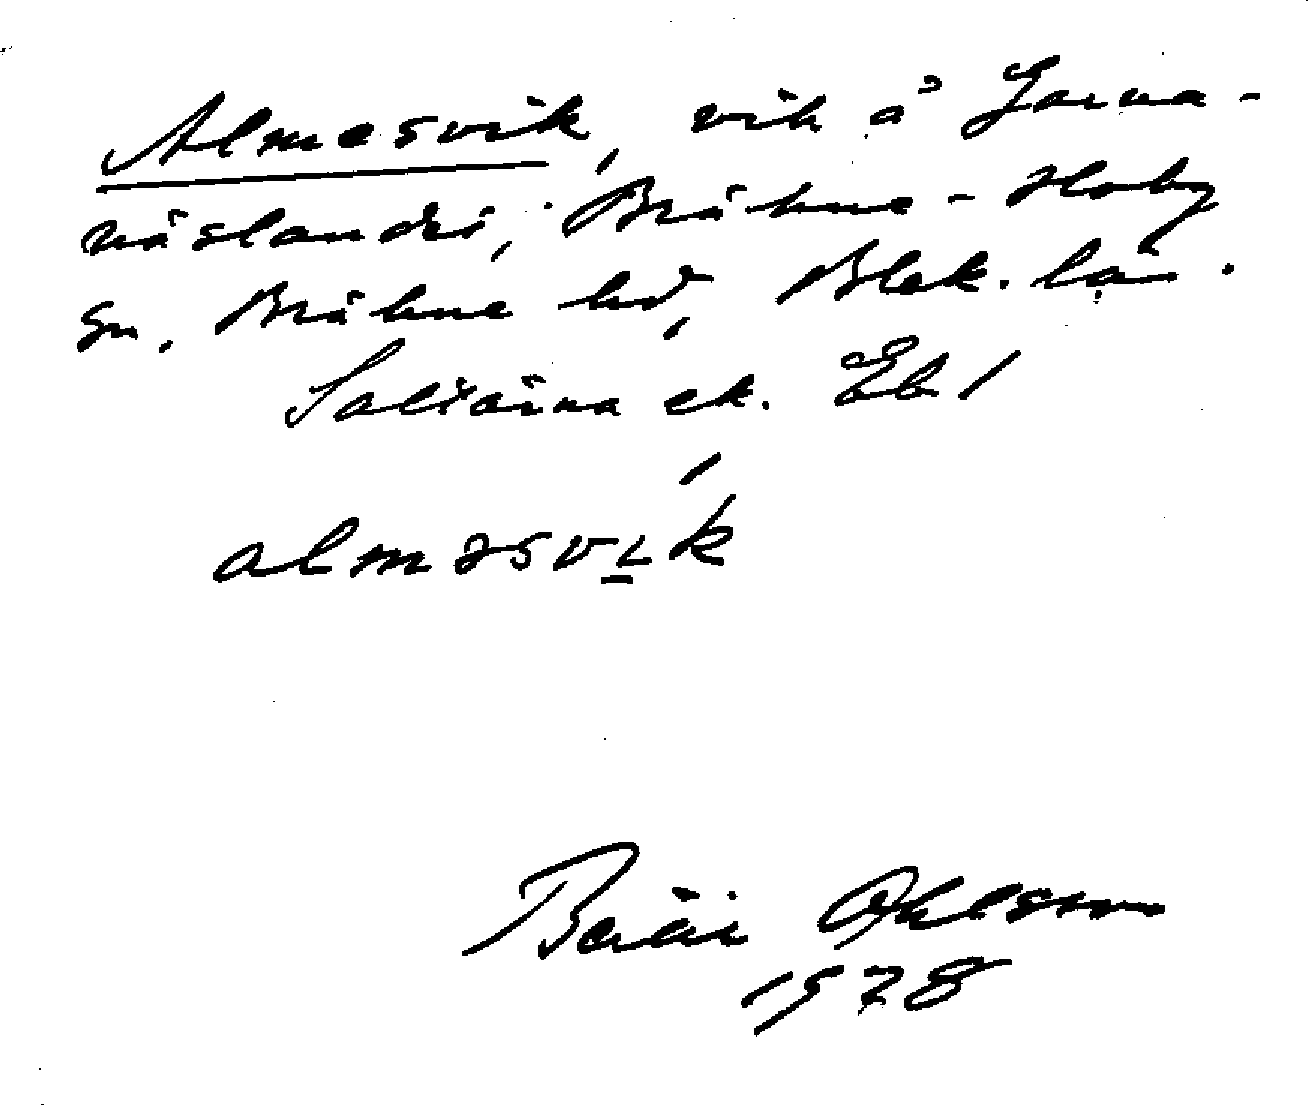 Almesvik, vik å Jarna-
näslandet, Bräkne-Hoby
sn, Bräkne hd, Blek. län.
Saltärna ek. Bl. 1
alməsvik
Ohlsson
1978